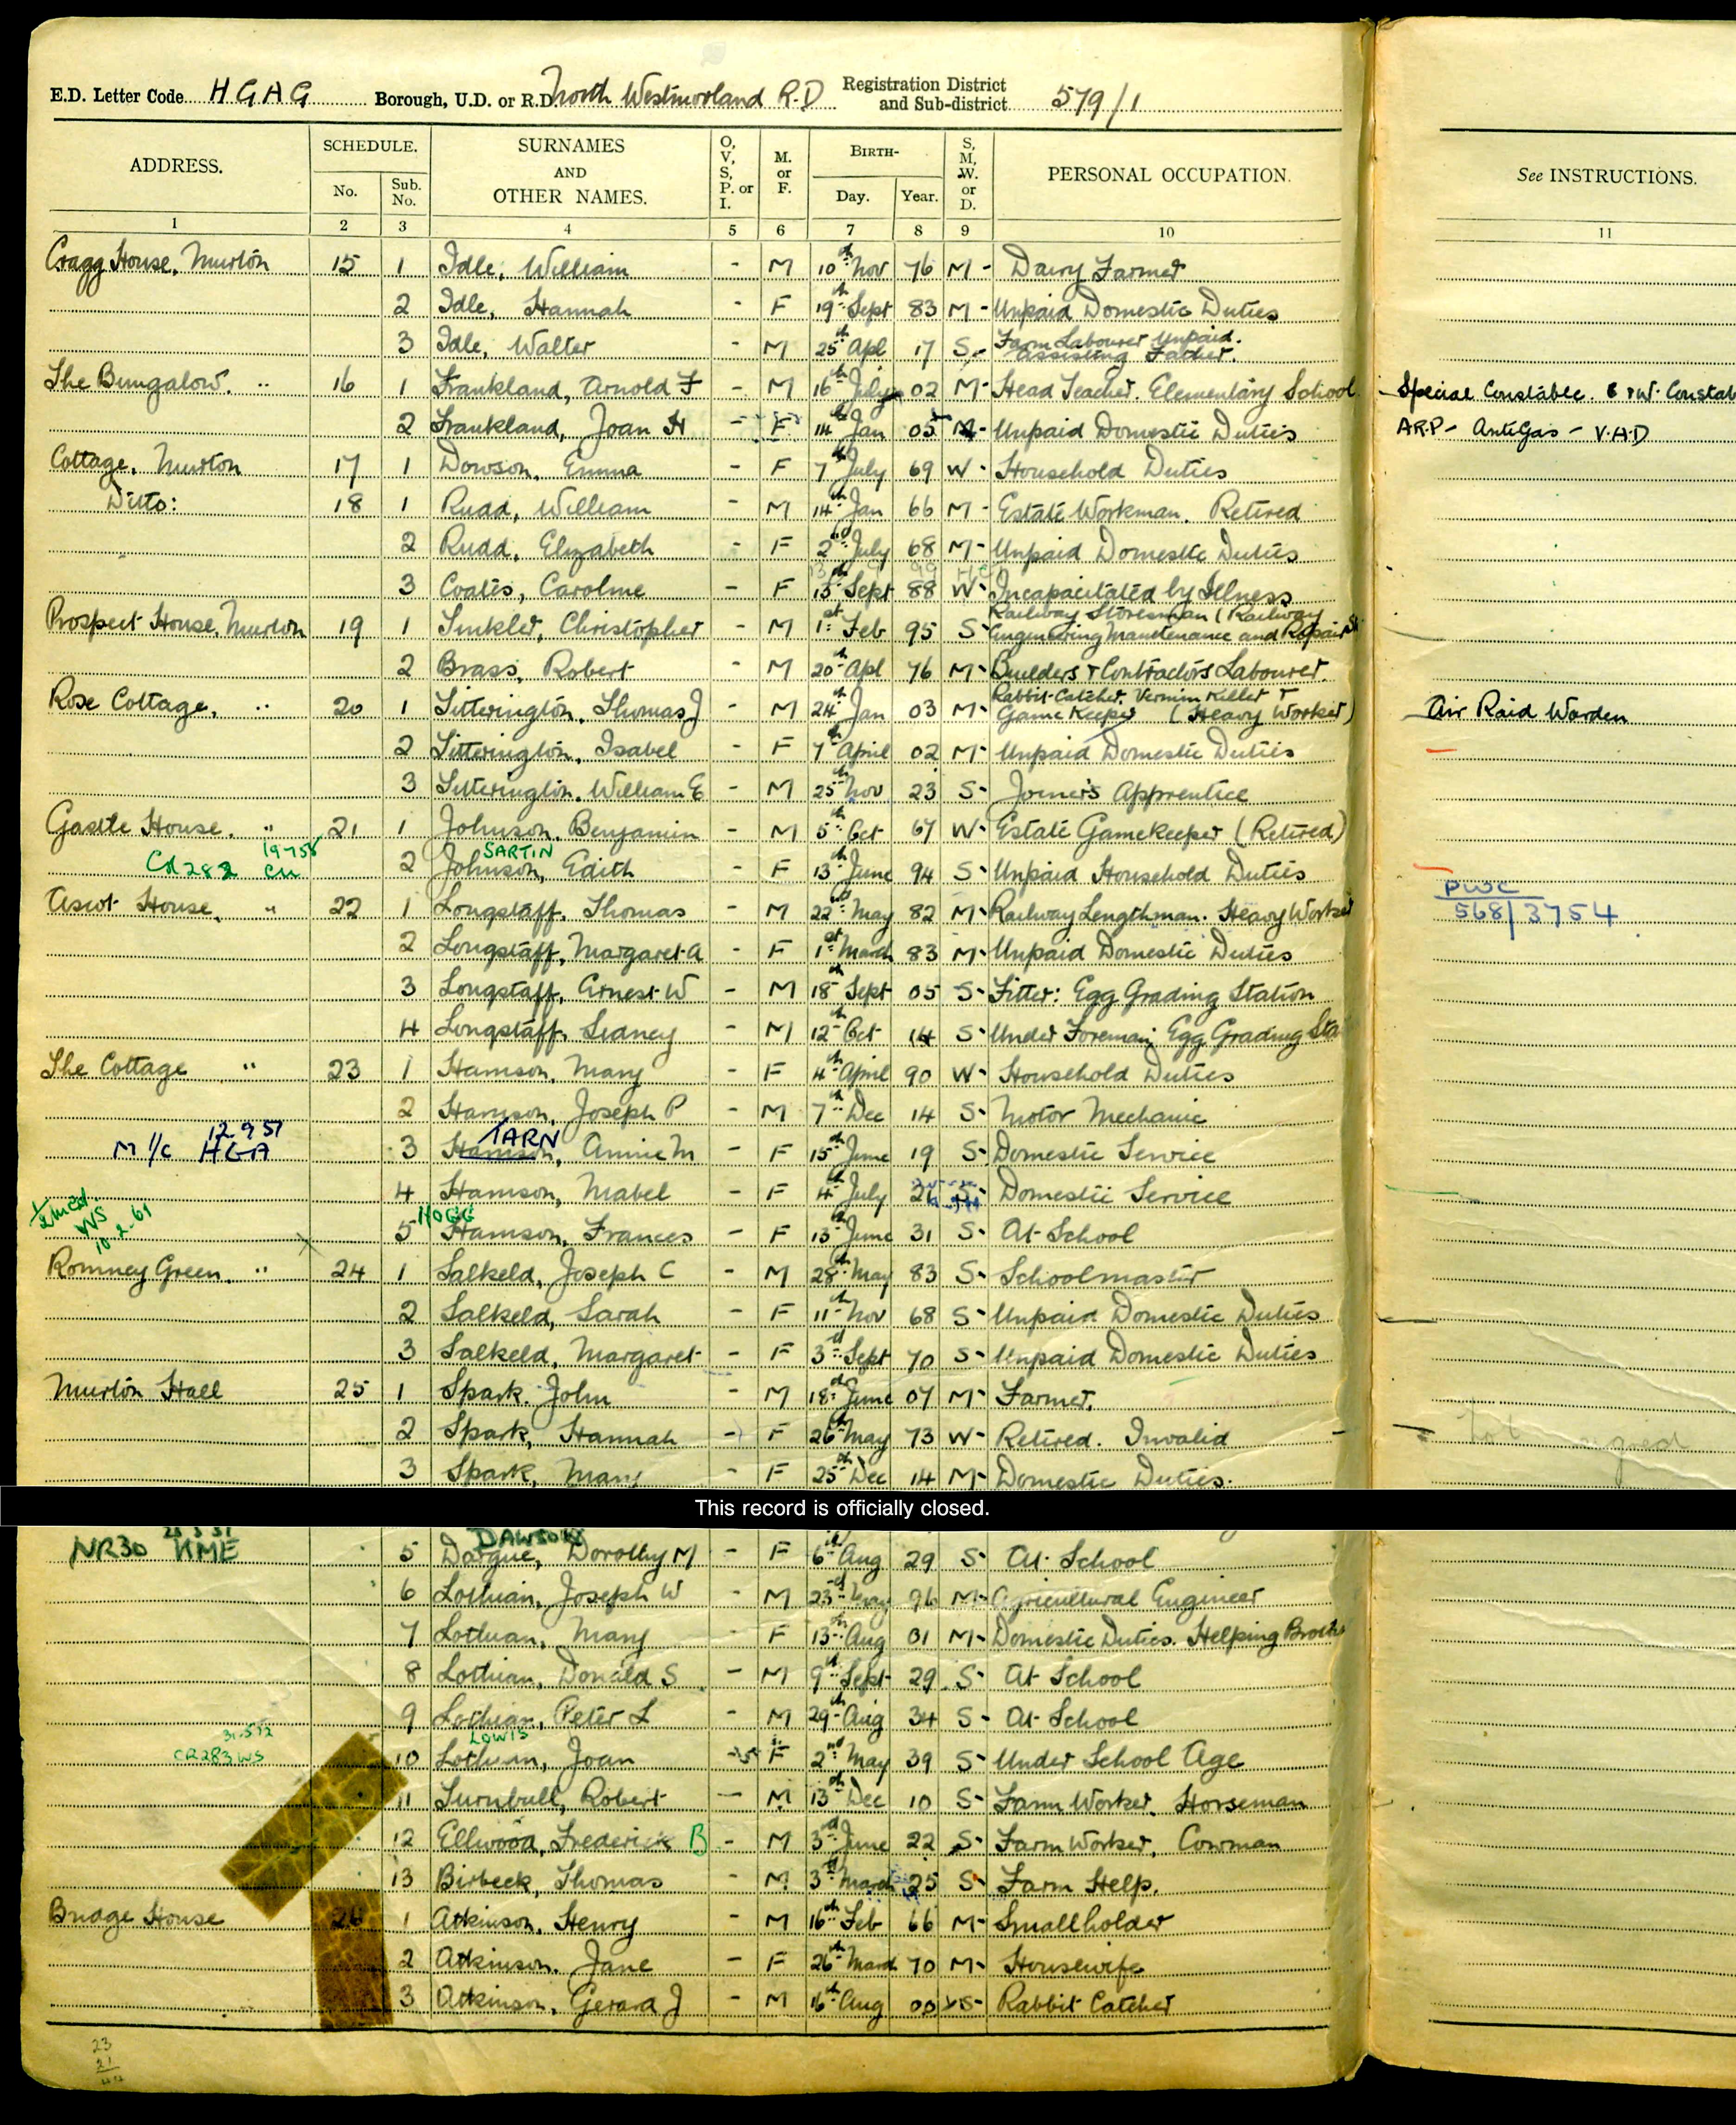 E.D. Letter Code HGAG Borough, U.D. or R.D. North Westmorland R.D Registration District and Sub-district 579/1
ADDRESS. SCHEDULE. No. Sub. No. SURNAMES AND OTHER NAMES. O, V, S, P. or I. M. or F. BIRTH- Day. Year. S, M, W. or D. PERSONAL OCCUPATION. See INSTRUCTIONS.
1 2 3 4 5 6 7 8 9 10 11
Cragg House, Murton 15 1 Idle, William - M 10th Nov 76 M - Dairy Farmer
2 Idle, Hannah - F 19th Sept 83 M - Unpaid Domestic Duties
3 Idle, Walter - M 25th Apl 17 S - Farm Labourer Unpaid. assisting Father.
The Bungalow. " 16 1 Frankland, Arnold F - M 16th July 02 M - Head Teacher. Elementary School Special Constable.
2 Frankland, Joan H - F 14th Jan 05 M - Unpaid Domestic Duties ARP - AntiGas - V.A.D
Cottage, Murton 17 1 Dowson, Emma - F 7th July 69 W - Household Duties
Ditto: 18 1 Rudd, William - M 14th Jan 66 M - Estate Workman. Retired
2 Rudd, Elizabeth - F 2nd July 68 M - Unpaid Domestic Duties
3 Coates, Caroline - F 15th Sept 88 W - Incapacitated by Illness
Prospect House, Murton 19 1 Tinkler, Christopher - M 1st Feb 95 S - Railway Storesman (Railway Engineering Maintenance and Repair
2 Brass, Robert - M 20th Apl 76 M - Builders & Contractors Labourer.
Rose Cottage, " 20 1 Titterington, Thomas J - M 24th Jan 03 M - Rabbit-Catcher. Vermin Killer & Game Keeper (Heavy Worker) Air Raid Warden
2 Titterington, Isabel - F 7th April 02 M - Unpaid Domestic Duties
3 Titterington, William E - M 25th Nov 23 S - Joiner's Apprentice
Gastle House. " 21 1 Johnson, Benjamin - M 5th Oct 67 W - Estate GameKeeper (Retired)
CR282 SARTIN
2 Johnson, Edith - F 13th June 94 S - Unpaid Household Duties
PWC
568/3754
House, " 22 1 Longstaff, Thomas - M 22nd May 82 M - Railway Lengthman. Heavy Worker
2 Longstaff, Margaret A - F 1st March 83 M - Unpaid Domestic Duties
3 Longstaff, Ernest W - M 18th Sept 05 S - Fitter: Egg Grading Station
4 Longstaff, Sidney - M 12th Oct 14 S - Under Foreman Egg Grading Sta
The Cottage " 23 1 Harrison, Mary - F 4th April 90 W - Household Duties
2 Harrison, Joseph P - M 7th Dec 14 S - Motor Mechanic
12 9 51 TARN
M 1/c HGA 3 Harrison, Annie M - F 15th June 19 S - Domestic Service
4 Harrison, Mabel - F 4th July S - Domestic Service
WS 10-2-61 HOGG
5 Harrison, Frances - F 13th June 31 S - At School
Romney Green. " 24 1 Salkeld, Joseph C - M 28th May 83 S - Schoolmaster
2 Salkeld, Sarah - F 11th Nov 68 S - Unpaid Domestic Duties
3 Salkeld, Margaret - F 3rd Sept 70 S - Unpaid Domestic Duties
Murton Hall 25 1 Spark, John - M 18th June 07 M - Farmer.
2 Spark, Hannah - F 26th May 73 W - Retired. Invalid
3 Spark, Mary - F 25th Dec 14 M - Domestic Duties.
This record is officially closed.
DAWSON
NR30 KME 5 Dargue, Dorothy M - F 6th Aug 29 S - At School
6 Lothian, Joseph W - M 23rd May 96 M - Agricultural Engineer
7 Lothian, Mary - F 13th Aug 01 M - Domestic Duties. Helping Broth
8 Lothian, Donald S - M 9th Sept 29 S - At School
9 Lothian, Peter L - M 29th Aug 34 S - At School
CR283 WS LOWIS
10 Lothian, Joan - F 2nd May 39 S - Under School Age
11 Turnbull, Robert - M 13th Dec 10 S - Farm Worker, Horseman
12 Ellwood, Frederick B - M 3rd June 22 S - Farm Worker, Cowman
13 Birbeck, Thomas - M 3rd March 25 S - Farm Help.
Bridge House 26 1 Atkinson, Henry - M 16th Feb 66 M - Smallholder
2 Atkinson, Jane - F 26th March 70 M - Housewife
3 Atkinson, Gerard J - M 16th Aug 00 S - Rabbit Catcher
23
21
44